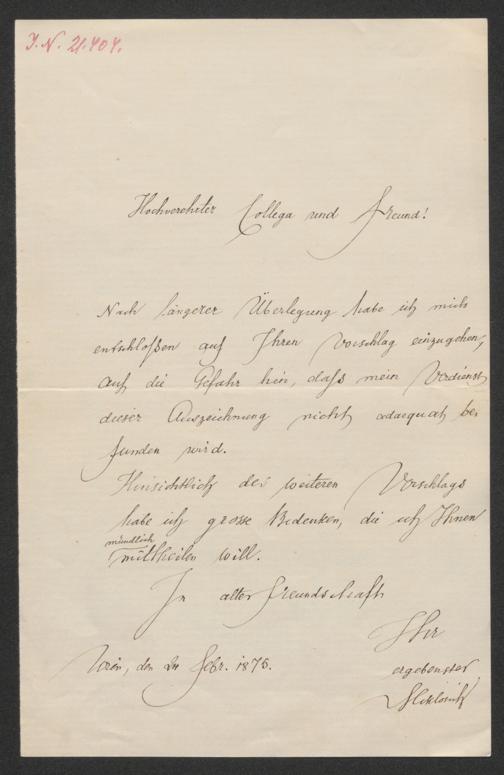 J. N. 21.404.
Hochverehrter Collega und Freund!
Nach längerer Überlegung habe ich mich
entschloßen auf Ihren Vorschlag einzugehen,
auf die Gefahr hin, daß mein Verdienst
dieser Auszeichnung nicht adaequat be
funden wird.
Hinsichtlich des weiteren Vorschlags
habe ich grosse Bedenken, die ich Ihnen
mündlich
mittheilen will.
In alter Freundschaft
Ihr
ergebenster
Miklosich
Wien, den Febr. 1875.